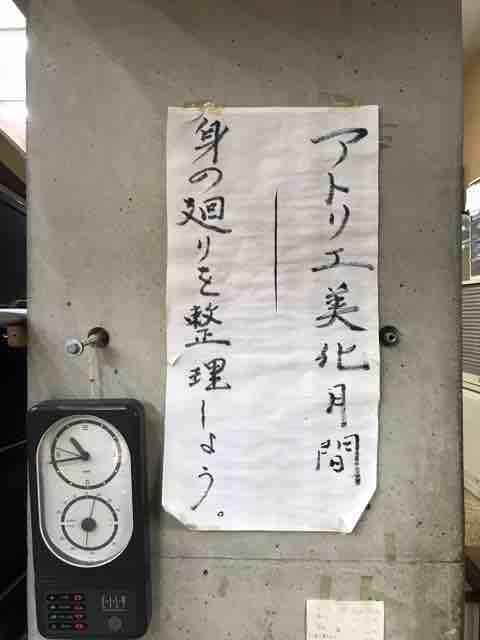 アトリエ美化月間
身の廻りを整理しよう。